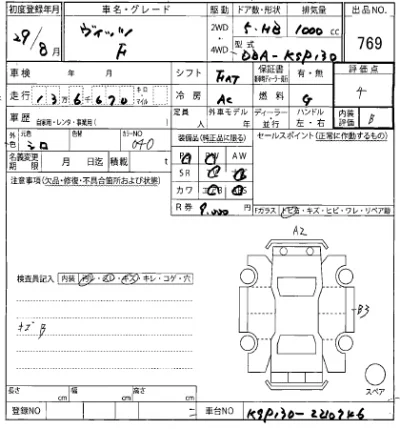 初度登録年月 車名・グレード 駆動 ドア数・形状 排気量 出品NO
29/8月 ヴィッツ F 2WD・4WD 5・HB 1000cc 769
型式 DBA-KSP130
車検 年 月 シフト FAT 保証書 有・無 評価点
走行 13万6千670 キロ・マイル 冷房 AC 燃料 G 4
車歴 自家用・レンタ・事業用( ) 定員 人 外車モデル 年 ディーラー・並行 ハンドル 左・右 内装評価 B
外色 元色 シロ カラーNO 040 装備品(純正品に限る) セールスポイント(正常に作動するもの)
名義変更期限 月 日迄 積載 t AW
注意事項(欠品・修復・不具合箇所および状態) SR
カワ
R券 9,000円
Fガラス トビ石・キズ・ヒビ・ワレ・リペア跡
A2
検査員記入 内装 キレ・コゲ・穴
B3
キズB
スペア
長さ cm 幅 cm 高さ cm
登録NO 車台NO KSP130-2210946